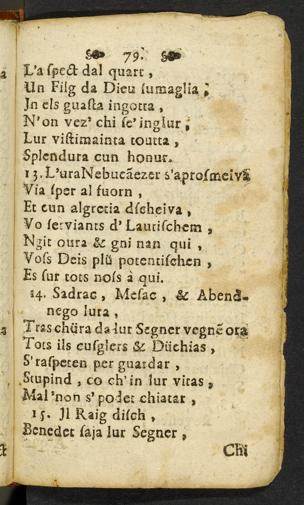 79.
L'a ſpect dal quart,
Un Filg da Dieu ſumaglia,
In els guaſta ingotta,
N'on vez' chi ſe' inglur,
Lur viſtimainta toutta,
Splendura cun honur.
13. L'ura Nebucãezer s'aproſmeiva
Via ſper al fuorn,
Et cun algretia dſcheiva,
Vo ſerviants d' Lautiſchem,
Ngit oura & gni nan qui,
Voſs Deis plü potentiſchen,
Es ſur tots noſs à qui.
14. Sadrac, Meſac, & Abend-
nego lura,
Tras chüra da lur Segner vegnẽ ora
Tots ils cuſglers & Düchias,
S'raſpeten per guardar,
Stupind, co ch'in lur vitas,
Mal'non s'podet chiatar,
15. Il Raig diſch,
Benedet ſaja lur Segner,
Chi